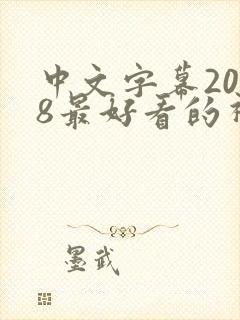 中文字幕20
8最好看的
墨武